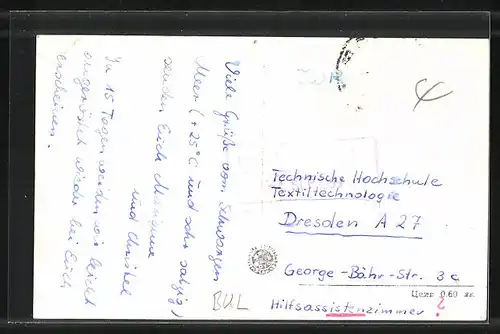 Viele Grüße vom Schwarzen
Meer (+ 25°C und sehr salzig)
senden Euch Monique
und Christel
In 15 Tagen werden wir leicht
angeröstet wieder bei Euch
erscheinen.
Technische Hochschule
Textiltechnologie
Dresden A 27
George-Bähr-Str. 3c
Цена 0.60 лв.
Hilfsassistenzimmer ?
BUL